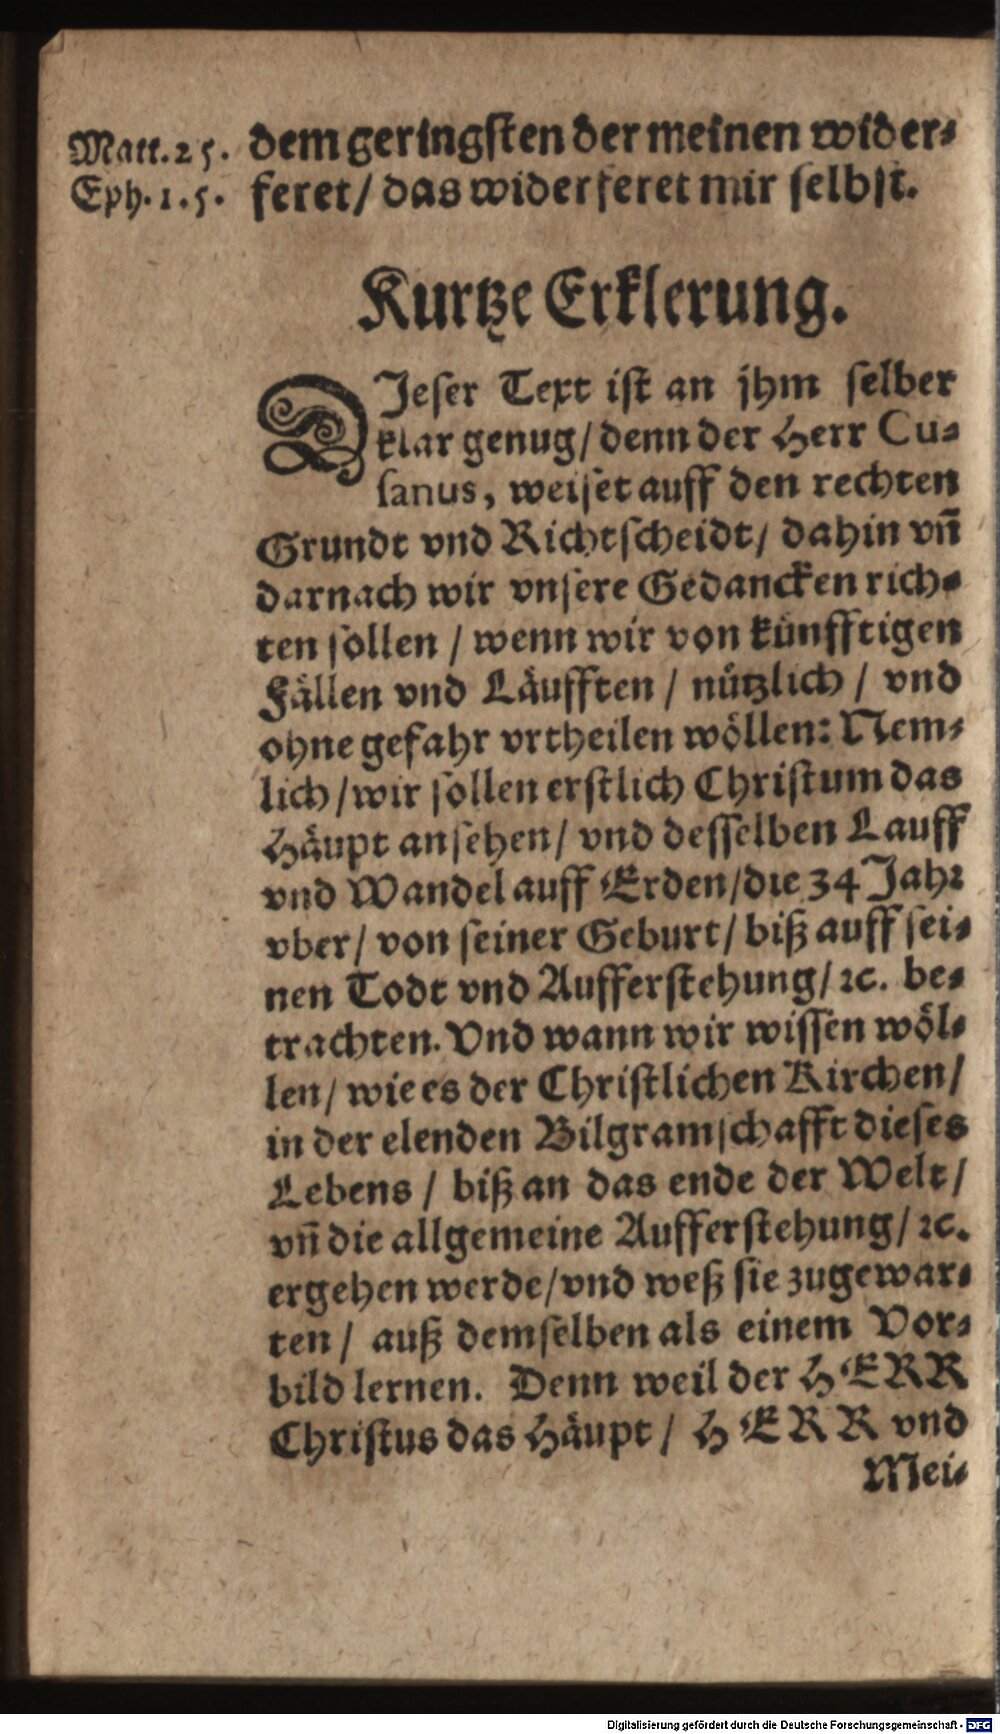 Matt. 25. dem geringsten der meinen wider-
Eph. 1. 5. feret / das widerferet mir selbst.
Kurtze Erklerung.
DJeser Text ist an jhm selber
klar genug / denn der Herr Cu-
sanus, weiset auff den rechten
Grundt vnd Richtscheidt / dahin vn̄
darnach wir vnsere Gedancken rich-
ten sollen / wenn wir von künfftigen
Fällen vnd Läufften / nützlich / vnd
ohne gefahr vrtheilen wöllen: Nem-
lich / wir sollen erstlich Christum das
Häupt ansehen / vnd desselben Lauff
vnd Wandel auff Erden / die 34 Jahr
vber / von seiner Geburt / biß auff sei-
nen Todt vnd Aufferstehung / ꝛc. be-
trachten. Vnd wann wir wissen wöl-
len / wie es der Christlichen Kirchen /
in der elenden Bilgramschafft dieses
Lebens / biß an das ende der Welt /
vn̄ die allgemeine Aufferstehung / ꝛc.
ergehen werde / vnd weß sie zugewar-
ten / auß demselben als einem Vor-
bild lernen. Denn weil der HERR
Christus das Häupt / HERR vnd
Mei-
Digitalisierung gefördert durch die Deutsche Forschungsgemeinschaft - DFG